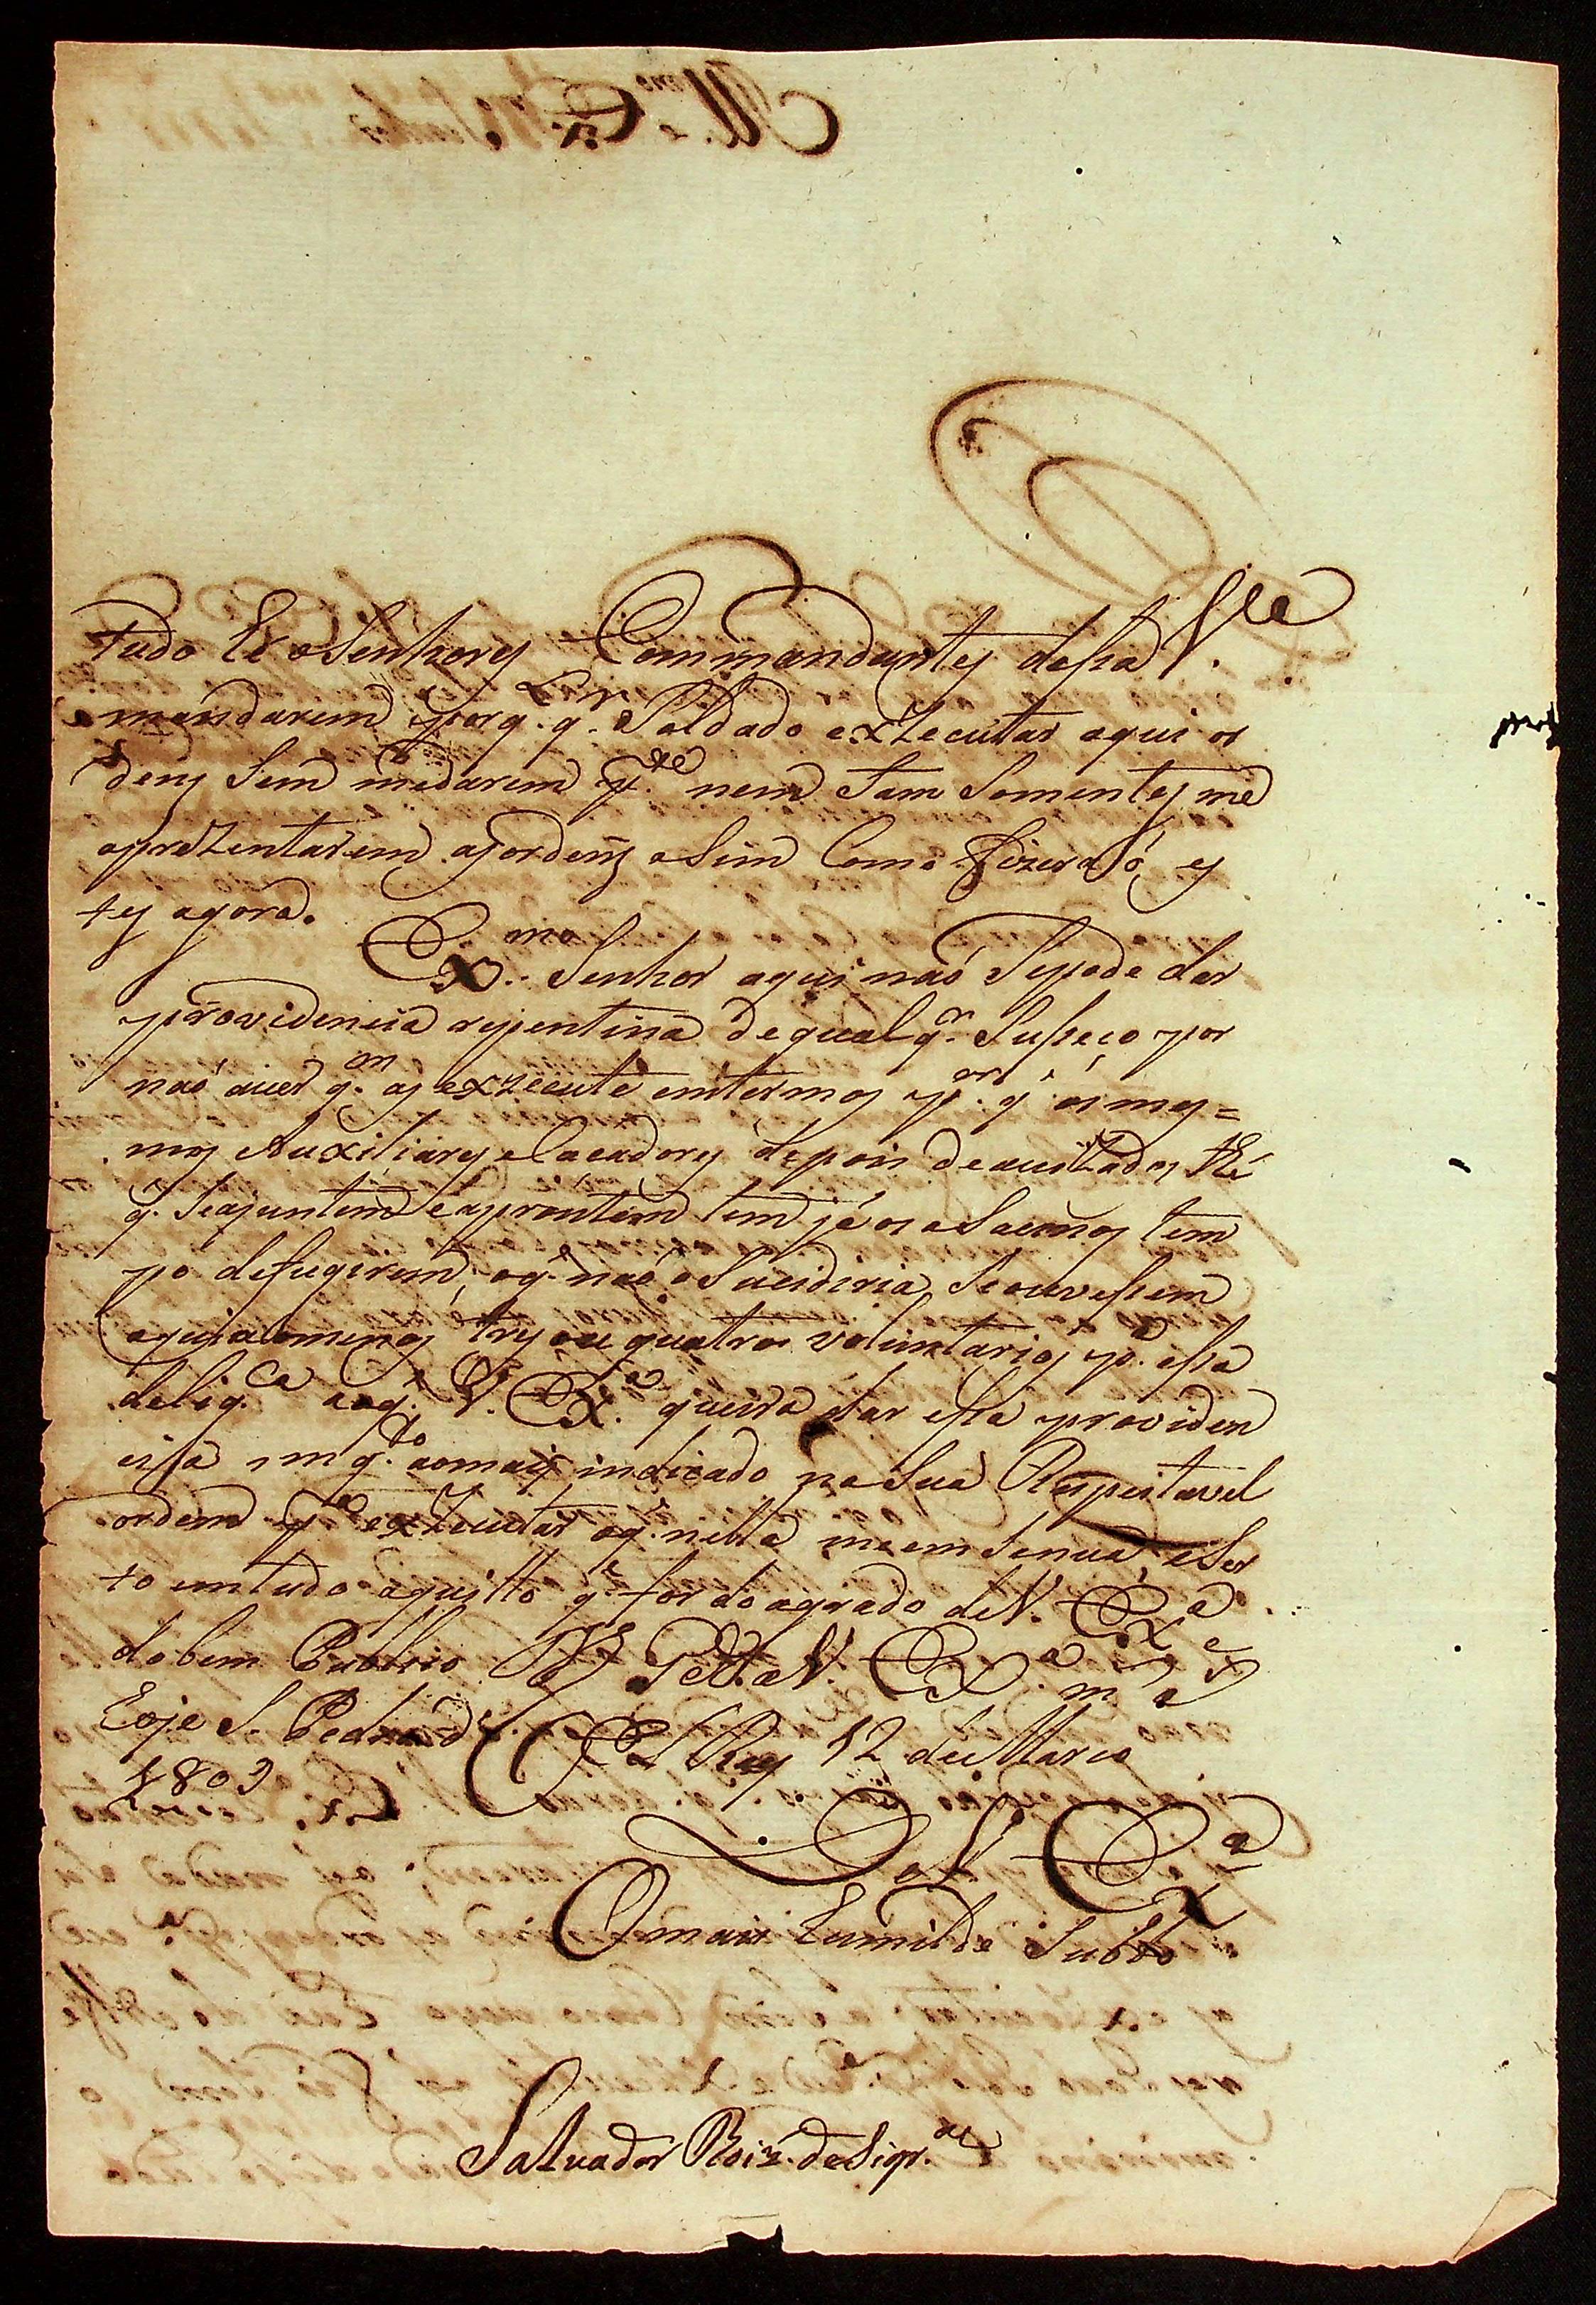 tudo Ex oSenhorez Commandantez dessa V.ª
mandarem por q. q.er Soldado exzecutar aqui or
denz Sem medarem p.te nem tam Somentez me
aprezentarem azordenz aSim Como fizerao, ez
tez agora.
Ex.mo Senhor aqui naó Sepode dar
providencia repentina de qual q.r Suseço por
naó aver q.m az exzecute emtermoz p.r q. oz mez=
moz Auxiliarez eCacadorez depoiz de avizadoz thé
q. Seajuntem eaprontem tem já oz aSacinoz tem
po defugirem, oq. naó aSucideria, Seouvessem
aquiaomenoz trez ou quatro voluntarioz p.ª essa
delig.ca aoq. V. Ex.ª queira dar essa providen
cissa emq.to aomaiz indicado na Sua Respeitavel
ordem p.ª exzecutar oq. nella meemSenua, eSer
to emtudo aquillo q. for do agrado deV. Ex.ª e
dobem Publico D.s G.de aV. Ex.ª m.s a.s
Eoje S. Pedro d' El Rey 12 de Marco
1809
De V. Ex.ª
Omaiz Eumilde Subto
Salvador Roiz. deSiqr.ª